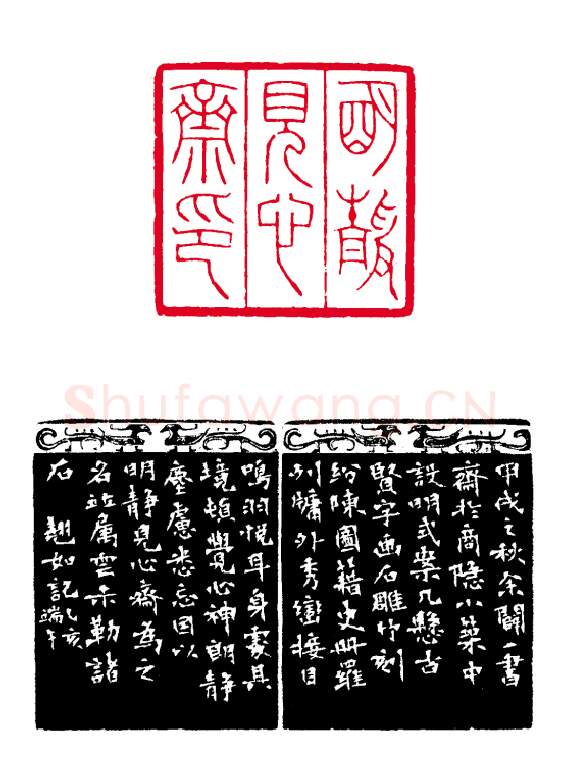 明靜
見心
齋印
Shufawang.CN
甲戌之秋余闢一書
齋於商隐小築中
設明式案几懸古
賢字畫石雕竹刻
紛陳圖籍史册羅
列牖外秀巒接目
鳴羽悦耳身處其
境頓覺心神朗静
塵慮悉忘因以
明静見心齋為之
名並屬雲禾勒諸
石 翹如記乙亥
端午